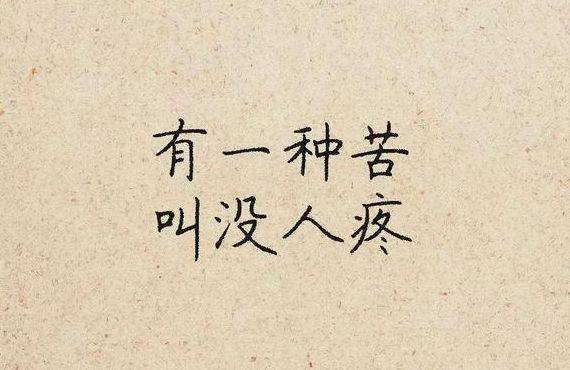 有一种苦
叫没人疼